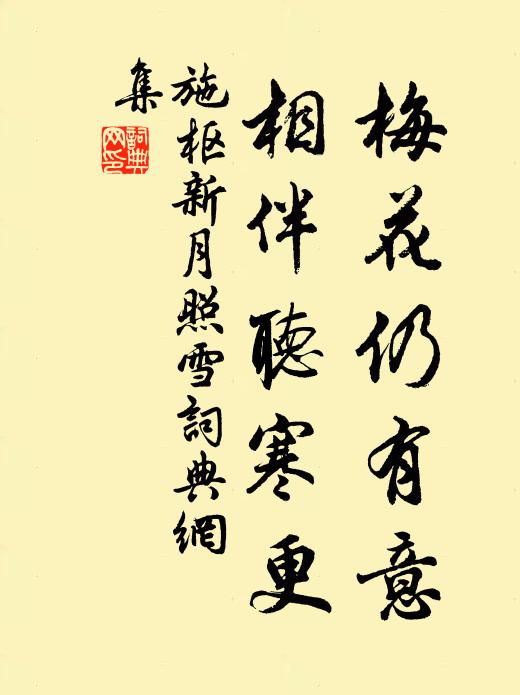 梅花仍有意
相伴聽寒更
施枢新月照雪詞典網
集
詞典
网印